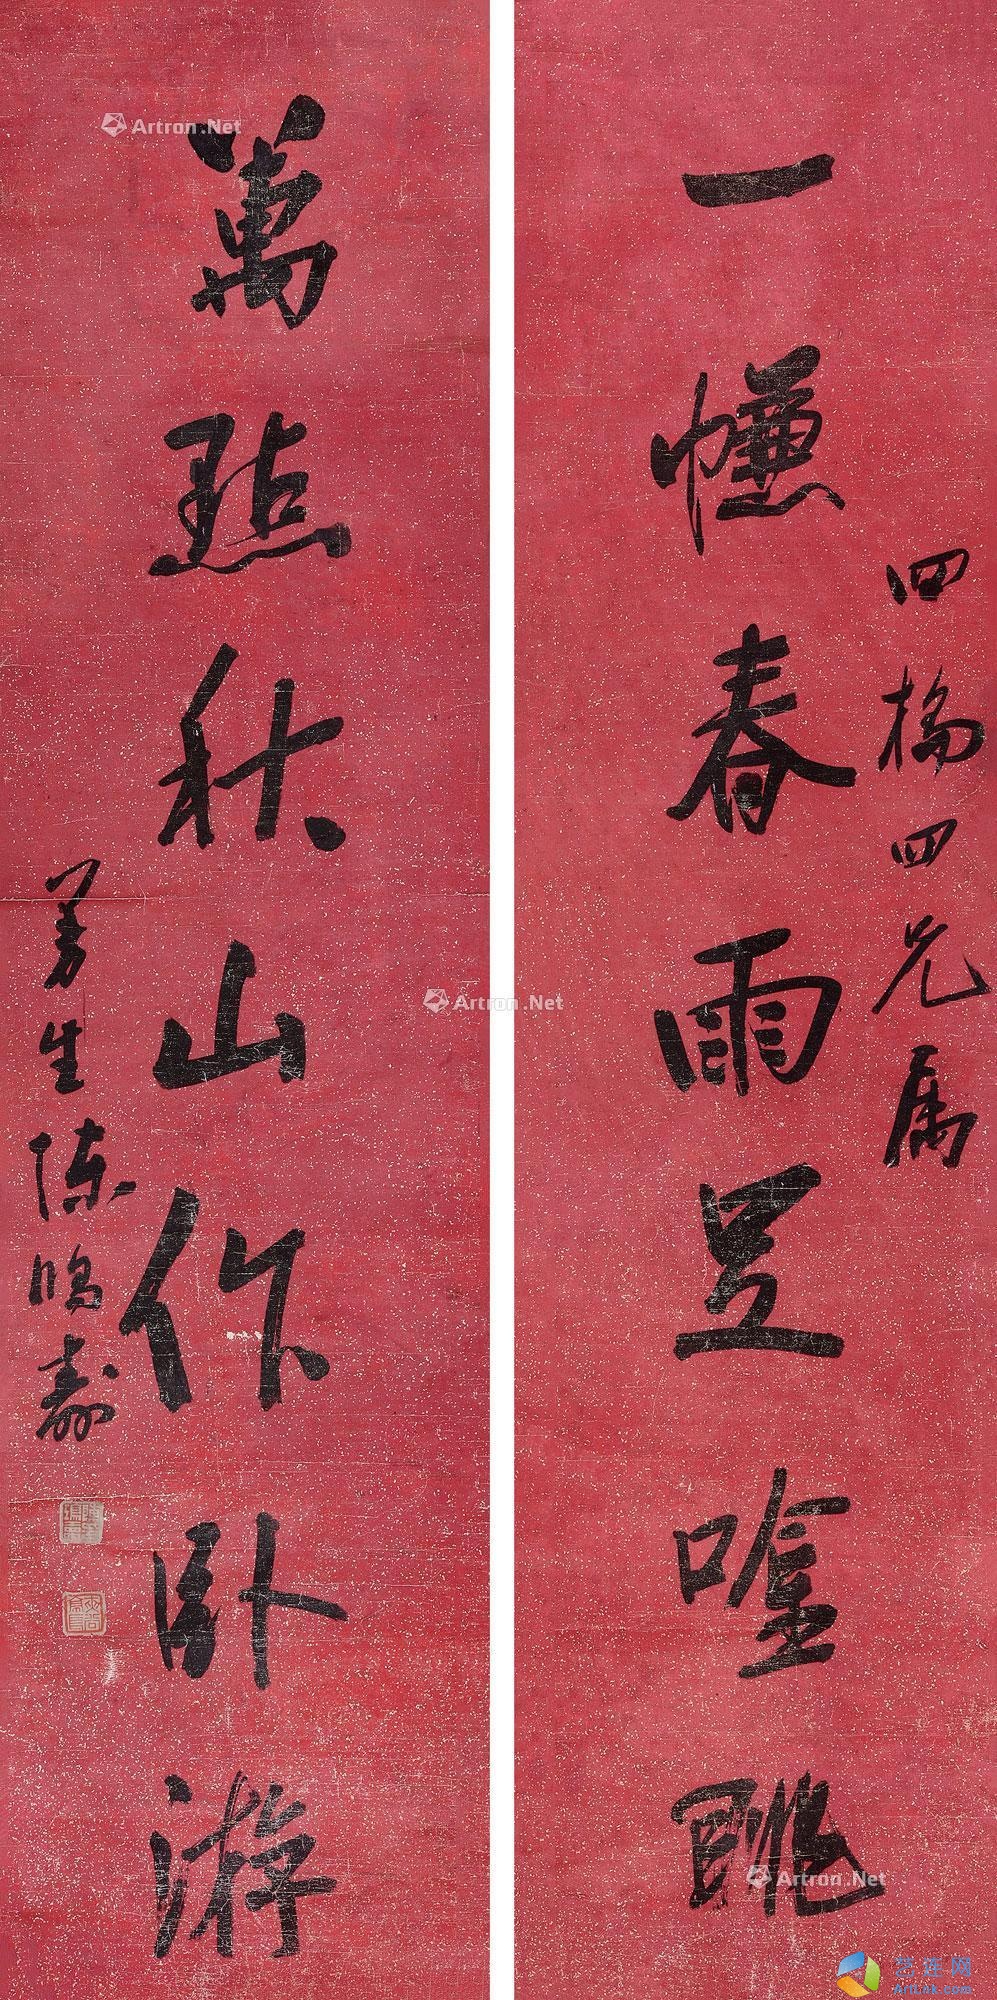 四橋四兄屬
一㡘春雨足唫眺
萬點秋山作卧游
曼生陳鴻壽
Artron.Net
Artron.Net
Artron.Net
艺连网
ArtLnk.com